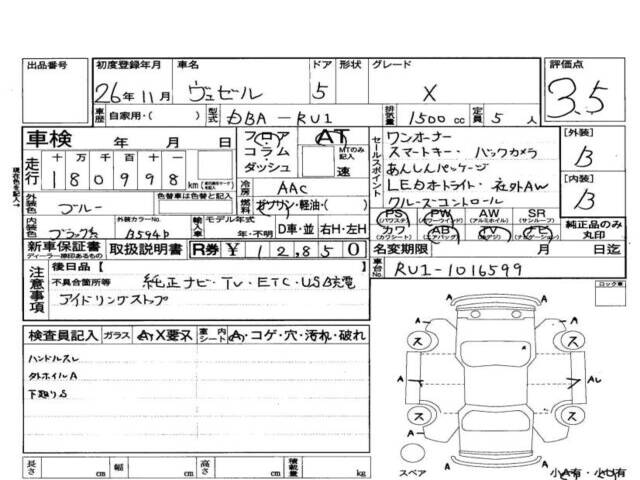 出品番号
初度登録年月 車名 ドア 形状 グレード 評価点
26年11月 ヴェゼル 5 X 3.5
車歴 自家用・( ) 型式 DBA-RU1 排気量 1500cc 定員 5人
車検 年 月 日
フロア コラム ダッシュ AT MTのみ記入 速
セールスポイント
ワンオーナー
スマートキー・バックカメラ
あんしんパッケージ
LEDオートライト・社外AW
クルーズコントロール
[外装] B
[内装] B
走行 十 万 千 百 十
180998 km
冷房 AAC
燃料 ガソリン・軽油・( )
外装色 ブルー 色替車は色替と記入
内装色 ブラック 外装カラーNo. B594P
輸入車 モデル年式 年・不明 D車・並 右H・左H
PS (パワステ) PW (パワーウインド) AW (アルミホイル) SR (サンルーフ)
カワ (カワシート) AB (エアバッグ) TV (アナ/デジ) ナビ (ナビゲーション)
純正品のみ丸印
新車保証書 ディーラー捺印あるもの 取扱説明書 R券 ¥12,850
名変期限 月 日迄
車台No. RU1-1016599
注意事項
後日品【
不具合箇所等 純正ナビ・TV・ETC・USB充電
アイドリングストップ
ロック車
検査員記入 ガラス A・Y X要又 室内シート A・コゲ・穴・汚れ・破れ
ハンドルスレ
タホイルA
下廻りS
A
ス ス
A A A AL
ス ス
A
スペア
小A有・小U有
長さ cm 幅 cm 高さ cm 積載量 kg